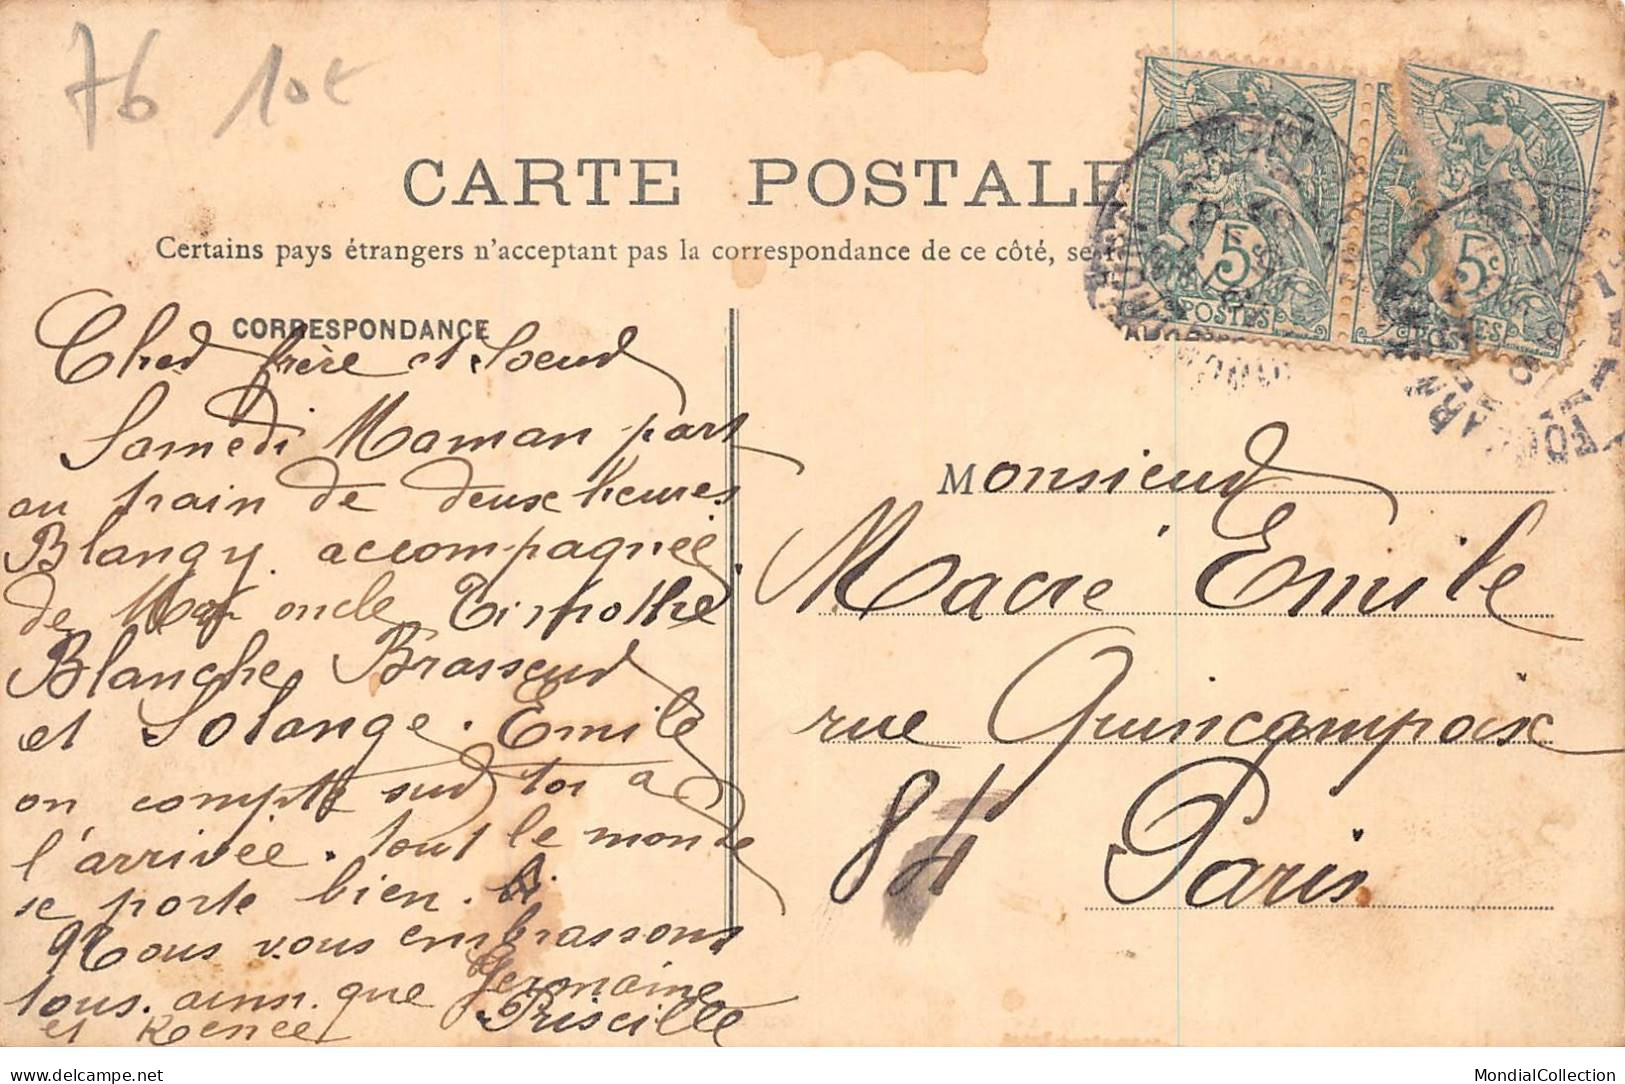 76 10€
CARTE POSTALE
Certains pays étrangers n'acceptant pas la correspondance de ce côté, se
CORRESPONDANCE
Cher frère et Soeur
Samedi Maman part
au train de deux heures
Blangy. accompagnée
de Mon oncle Timothé
Blanche Brasseur
et Solange. Emile
on compte sur toi a
l'arrivée. tout le monde
se porte bien.
Nous vous embrassons
tous. ainsi que Germaine
et Renée Priscille
5c 5c
POSTES POSTES
Monsieur
Macré Emile
rue Quincampoix
84 Paris
delcampe.net
MondialCollection